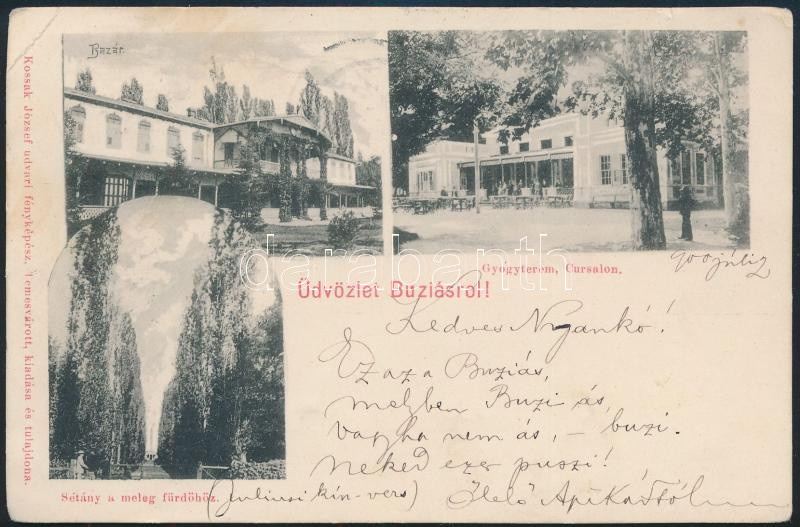 Bazár.
Gyógyterem, Cursalon.
900 júli 2
Üdvözlet Buziásról!
Kedves Nyankó!
Ez az a Buziás,
melyben Buzi ás,
vagy ha nem ás, – buzi.
Neked ezer puszi!
(Juliusi kín-vers) Ölelő Apikástól
Sétány a meleg fürdőhöz.
Kossak József udvari fényképész, Temesvárott, kiadása és tulajdona.
darabanth